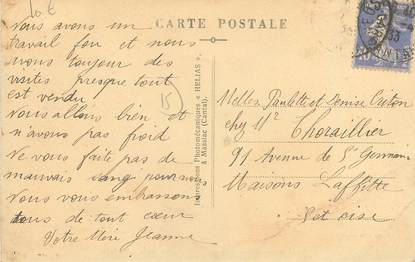 10 €
CARTE POSTALE
Nous avons un
travail fou et nous
avons toujour des
visites presque tout
est vendu
Nous allons bien et
n'avons pas froid
Ne vous faite pas de
mauvais sang
Nous vous embrassons
tous de tout cœur
Votre Mère Jeanne
15
Impressions Photomécaniques « HELIAS »,
à Massiac (Cantal).
Melles Paulette et Denise
chez Mr Choraillier
91 Avenue de St Germain
Maisons Laffitte
S et oise